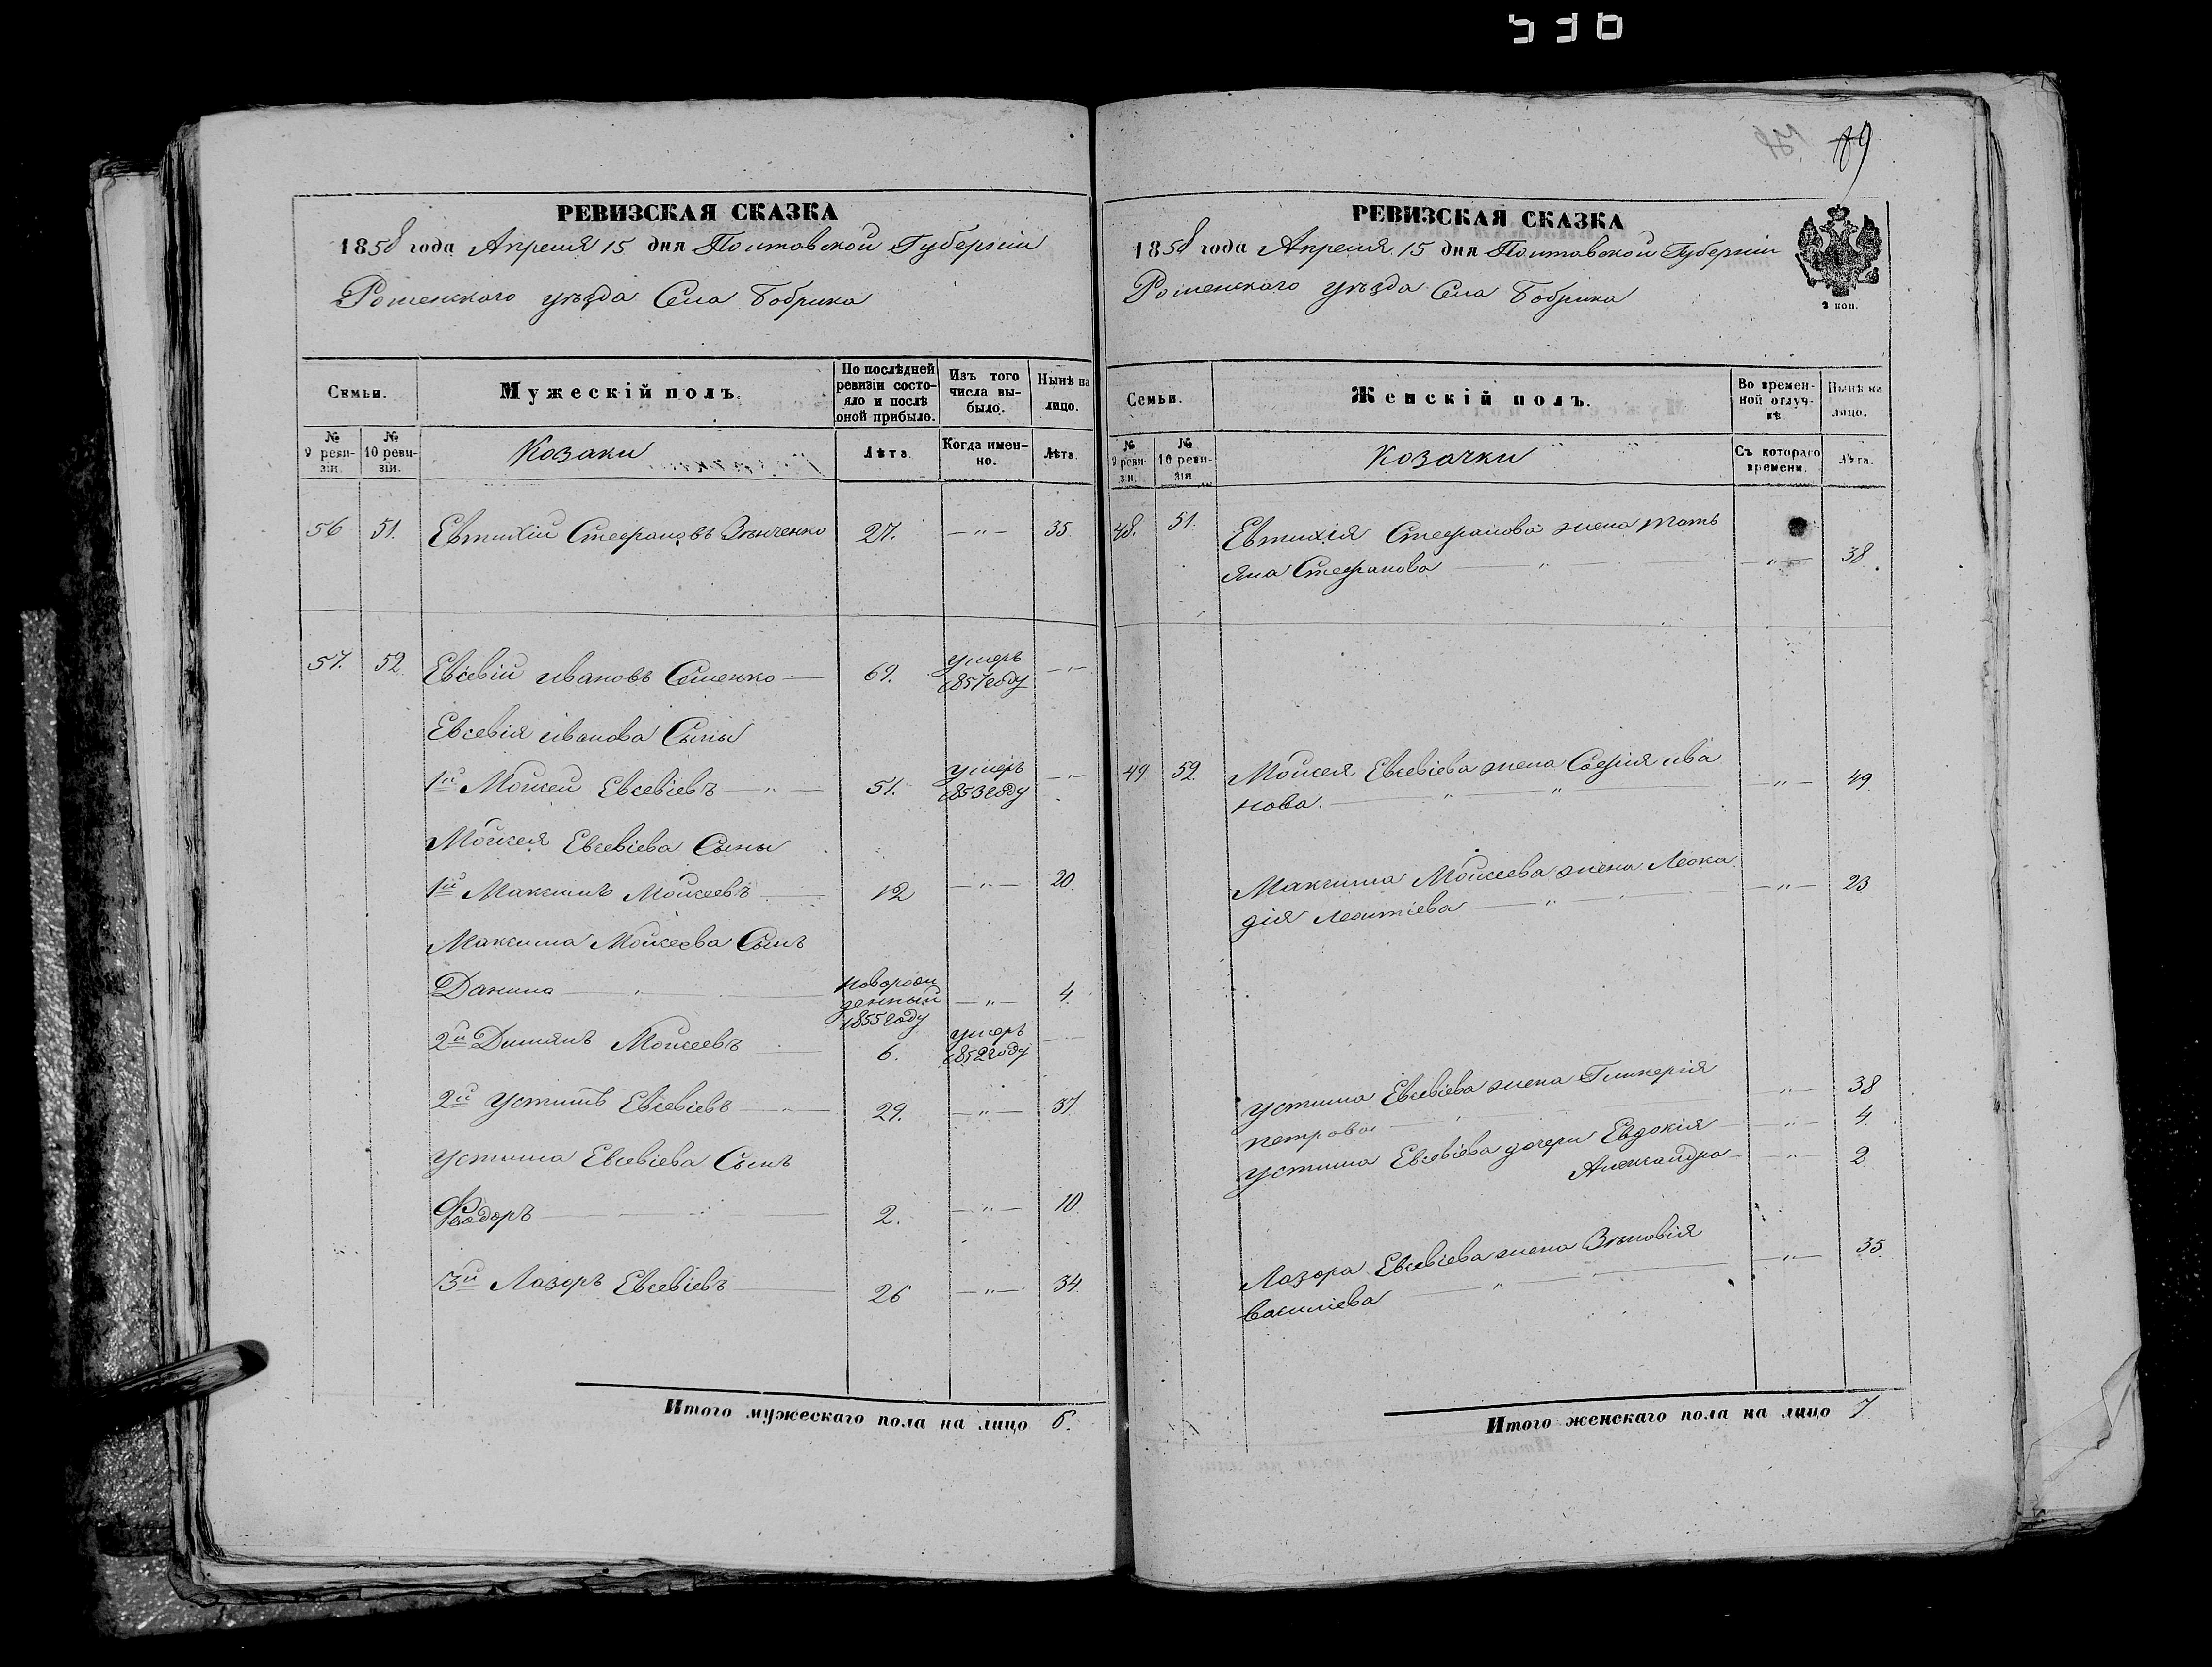 536
89
РЕВИЗСКАЯ СКАЗКА
1858 года Апреля 15 дня Полтавской Губерніи
Роменского уѣзда Села Бобрика
Семьи.
Мужескій полъ.
По послѣдней ревизіи состояло и послѣ оной прибыло.
Изъ того числа выбыло.
Нынѣ на лицо.
№ 9 ревизіи.
№ 10 ревизіи.
Козаки
Лѣта
Когда именно.
Лѣта.
56 51. Евтихій Стефановъ Зѣнченко 27. —"— 35.
57. 52 Евсевій Ивановъ Семенко 69. умеръ 1857 году —"—
Евсевія Иванова Сыны
1й Мойсей Евсевіевъ —"— 51. умеръ 1853 году —"—
Мойсея Евсевіева Сыны
1й Максимъ Мойсеевъ 12 —"— 20.
Максима Мойсеева Сынъ
Данило —"— новорожденный 1855 году —"— 4
2й Димянъ Мойсеевъ 6. умеръ 1852 году
2й Устинъ Евсевіевъ —"— 29. —"— 37
Устина Евсевіева Сынъ
Феодоръ 2. —"— 10.
3й Лазоръ Евсевіевъ 26 —"— 34
Итого мужескаго пола на лицо 6.
РЕВИЗСКАЯ СКАЗКА
1858 года Апреля 15 дня Полтавской Губерніи
Роменского уѣзда Села Бобрика
2 коп.
Семьи.
Женскій полъ.
Во временной отлучкѣ
Нынѣ на лицо.
№ 9 ревизіи.
№ 10 ревизіи.
Козачки
Съ котораго времени.
Лѣта.
48. 51. Евтихія Стефанова жена Татья
яна Стефанова —"— 38
49 52. Мойсея Евсевіева жена Софія ива
нова. —"— 49
Максима Мойсеева жена Леока
дія Леонтіева —"— 23
Устина Евсевіева жена Гликерія —"— 38
петрова
Устина Евсевіева дочери Евдокія —"— 4.
Александра —"— 2
Лазора Евсевіева жена Зѣновія —"— 35.
василіева
Итого женскаго пола на лицо 7